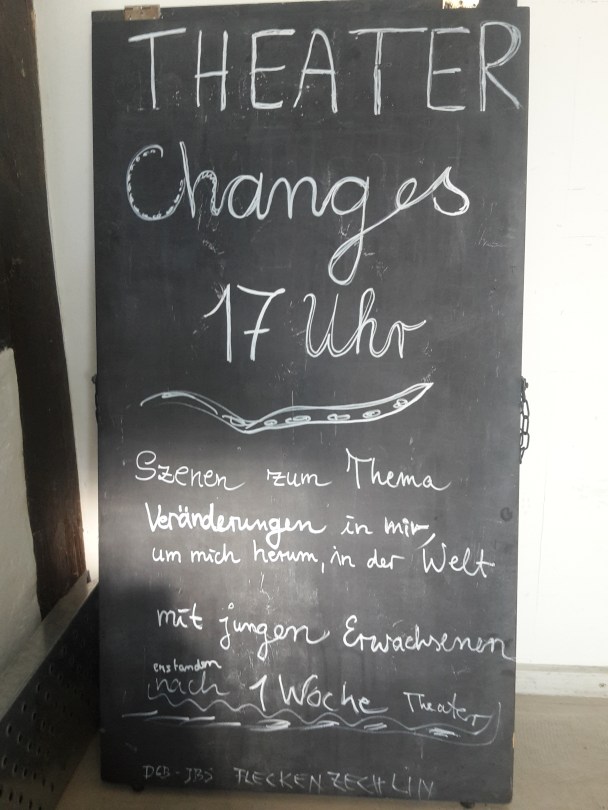 THEATER
Changes
17 Uhr
Szenen zum Thema
Veränderungen in mir,
um mich herum, in der Welt
mit jungen Erwachsenen
enstanden
nach 1 Woche Theater
DGB-JBS FLECKENZECHLIN